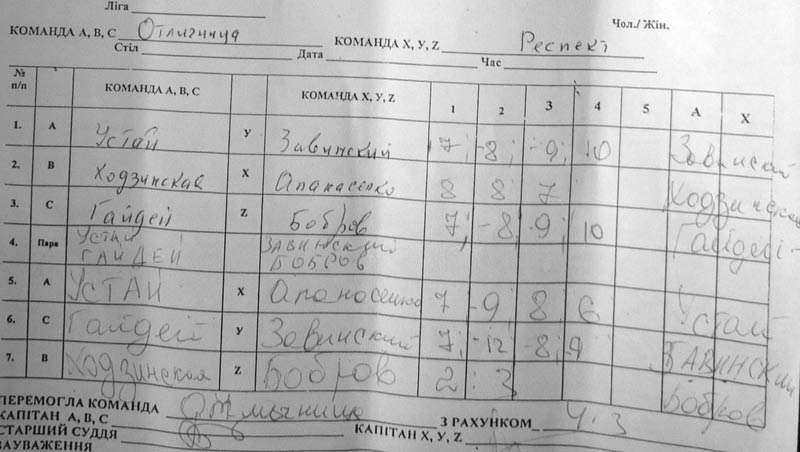 Ліга
Чол./ Жін.
КОМАНДА А, В, С Отличница КОМАНДА X, У, Z Респект
Стіл Дата Час
№ п/п КОМАНДА А, В, С КОМАНДА X, У, Z 1 2 3 4 5 А X
1. А Устай У Завинский 7; -8; -9; 10 Завинский
2. В Ходзинская X Апанасенко 8 8 7 Ходзинская
3. С Гайдей Z Бобров 7; -8; 9 10 Гайдей
4. Пара Устай ГАЙДЕЙ ЗАВИНСКИЙ БОБРОВ
5. А УСТАЙ X Апанасенко 7 -9 8 6 Устай
6. С Гайдей У Завинский 7; -12 -8; 9 ЗАВИНСКИЙ
7. В Ходзинская Z Бобров 2 : 3 Бобров
ПЕРЕМОГЛА КОМАНДА Отличница З РАХУНКОМ 4:3
КАПІТАН А, В, С КАПІТАН X, У, Z
СТАРШИЙ СУДДЯ
ЗАУВАЖЕННЯ